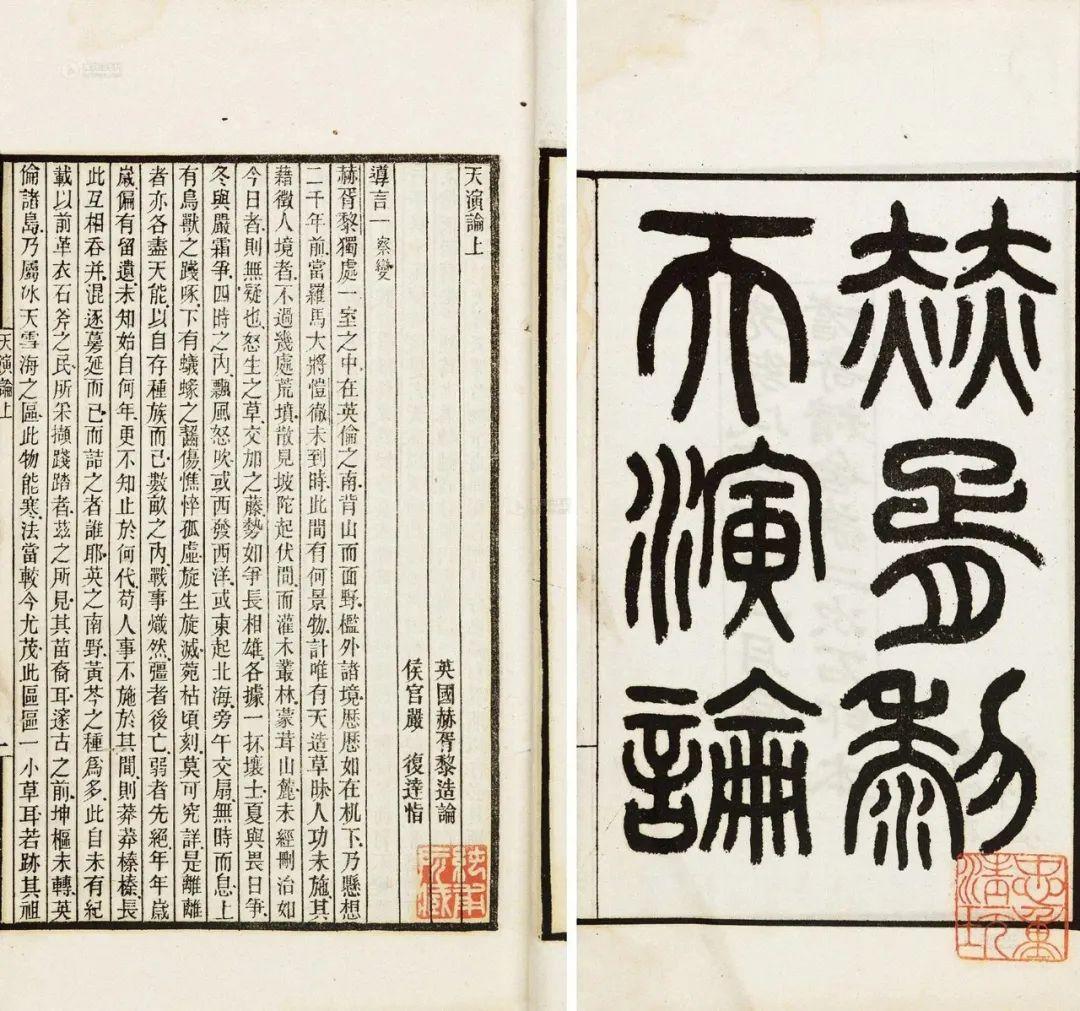 赫胥黎
天演論
天演論上
英國赫胥黎造論
侯官嚴 復達恉
導言一 察變
赫胥黎獨處一室之中在英倫之南背山而面野檻外諸境歷歷如在机下乃懸想
二千年前當羅馬大將愷徹未到時此間有何景物計唯有天造草昧人功未施其
藉徵人境者不過幾處荒墳散見坡陀起伏間而灌木叢林蒙茸山麓未經刪治如
今日者則無疑也怒生之草交加之藤勢如爭長相雄各據一抔壤土夏與畏日爭
冬與嚴霜爭四時之內飄風怒吹或西發西洋或東起北海旁午交扇無時而息上
有鳥獸之踐啄下有蟻蝝之齧傷憔悴孤虛旋生旋滅菀枯頃刻莫可究詳是離離
者亦各盡天能以自存種族而已數畝之內戰事熾然彊者後亡弱者先絕年年歲
歲偏有留遺未知始自何年更不知止於何代苟人事不施於其間則莽莽榛榛長
此互相吞并混逐蔓延而已而詰之者誰耶英之南野黃芩之種爲多此自未有紀
載以前革衣石斧之民所采擷踐踏者茲之所見其苗裔耳邃古之前坤樞未轉英
倫諸島乃屬冰天雪海之區此物能寒法當較今尤茂此區區一小草耳若跡其祖
天演論上
一